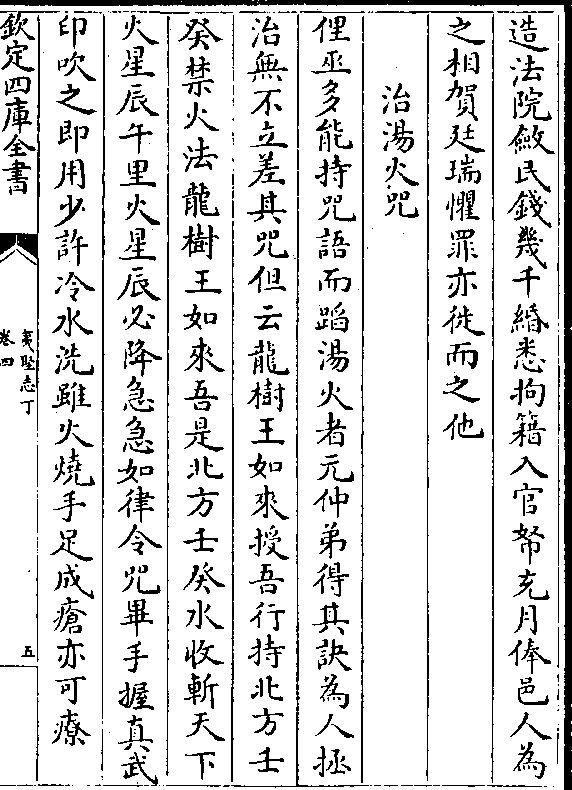 造法院斂民錢幾千緡悉拘籍入官帑充月俸邑人為
之相賀廷瑞懼罪亦徙而之他
治湯火咒
俚巫多能持咒語而蹈湯火者元仲弟得其訣為人拯
治無不立差其咒但云龍樹王如來授吾行持北方壬
癸禁火法龍樹王如來吾是北方壬癸水收斬天下
火星辰午里火星辰必降急急如律令咒畢手握真武
印吹之即用少許冷水洗雖火燒手足成瘡亦可療
欽定四庫全書
夷堅志丁
卷四
五